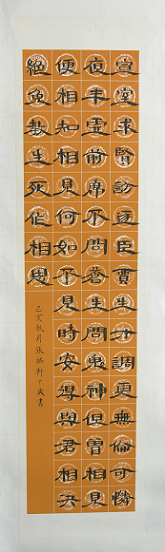 宣室求賢訪逐臣賈生才調更無倫可憐
夜半虛前席不問蒼生問鬼神但曾相見
便相知相見何如不見時安得與君相决
絕免教生死作相思
己亥秋月張軒十歲書